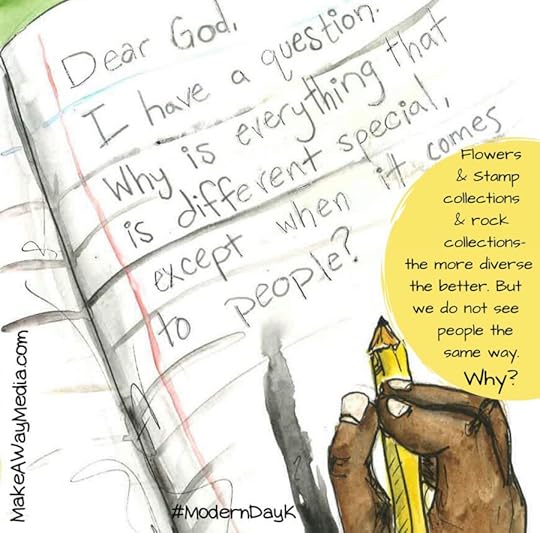 Dear God,
I have a question.
Why is everything that
is different special,
except when it comes
to people?
Flowers
& Stamp
collections
& rock
collections-
the more diverse
the better. But
we do not see
people the
same way.
Why?
MakeAWayMedia.com
#ModernDayK